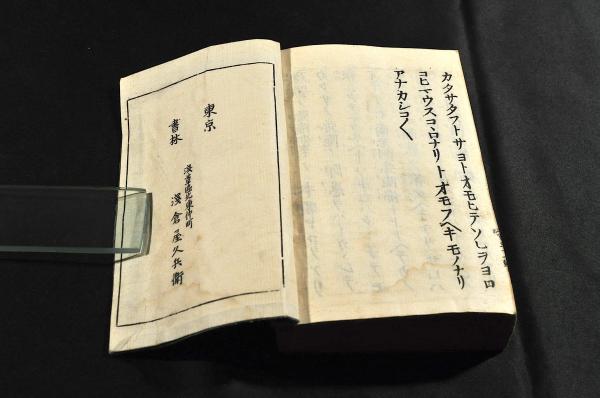 カクサタフトサヨトオモヒテソレヲヨロ
コヒマウスコヽロナリトオモフヘキモノナリ
アナカシコ〱
東京
書林
淺草區北東仲町
淺倉屋久兵衛